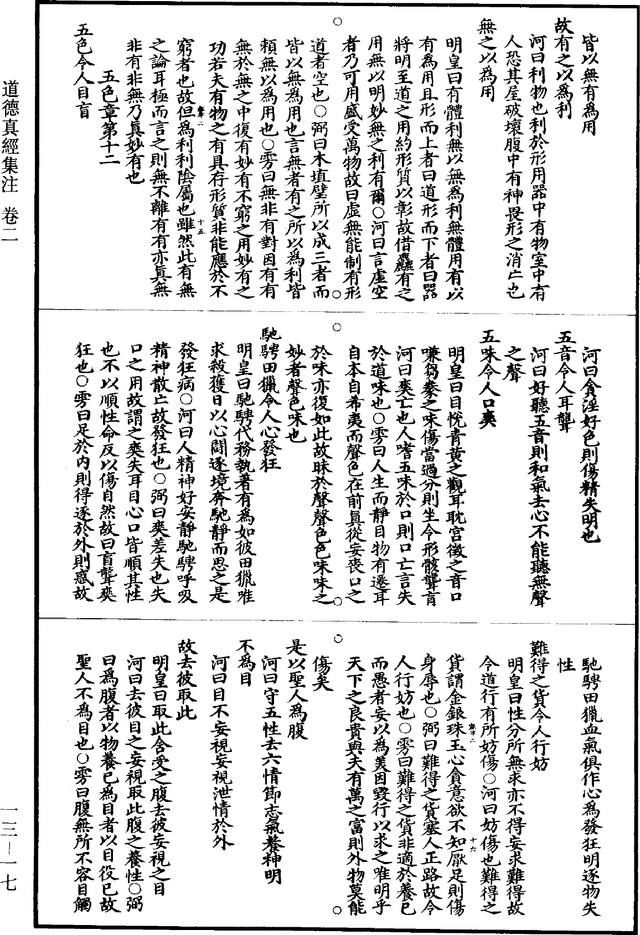 皆以無有為用
故有之以為利
河曰利物也利於形用器中有物室中有
人恐其屋破壞腹中有神畏形之消亡也
無之以為用
明皇曰有體利無以無為利無體用有以
有為用且形而上者曰道形而下者曰器
將明至道之用約形質以彰故借麤有之
用無以明妙無之利有爾○河曰言虛空
者乃可用盛受萬物故曰虛無能制有形
道者空也○弼曰木埴壁所以成三者而
皆以無為用也言無者有之所以為利皆
賴無以為用也○雱曰無非有對因有有
無於無之中復有妙有不窮之用妙有之
功若夫有物之有具存形質非能應於不
十五
窮者也故但為利利陰屬也雖然此有無
之論耳極而言之則無不離有有亦真無
非有非無乃真妙有也
五色章第十二
五色令人目盲
河曰貪淫好色則傷精失明也
五音令人耳聾
河曰好聽五音則和氣去心不能聽無聲
之聲
五味令人口爽
明皇曰目悅青黃之觀耳耽宮徵之音口
嗛芻豢之味傷當過分則坐令形骸聾盲
河曰爽亡也人嗜五味於口則口亡言失
於道味也○雱曰人生而靜目物有遷耳
自本自希夷而聲色在前真從妄喪口之
於味亦復如此故昧於聲聲色色味味之
妙者聲色味也
馳騁田獵令人心發狂
明皇曰馳騁代務執著有為如彼田獵唯
求殺獲日以心鬪逐境奔馳靜而思之是
發狂病○河曰人精神好安靜馳騁呼吸
精神散亡故發狂也○弼曰爽差失也失
口之用故謂之爽失耳目心口皆順其性
也不以順性命反以傷自然故曰盲聾爽
狂也○雱曰足於內則得逐於外則惑故
馳騁田獵血氣俱作心為發狂明逐物失
性
難得之貨令人行妨
明皇曰性分所無求亦不得妄求難得故
令道行有所妨傷○河曰妨傷也難得之
貨謂金銀珠玉心貪意欲不知厭足則傷
十六
身辱也○弼曰難得之貨塞人正路故令
人行妨也○雱曰難得之貨非適於養已
而愚者妄以為美因毀行以求之唯明乎
天下之良貴與夫有萬之富則外物莫能
傷矣
是以聖人為腹
河曰守五性去六情節志氣養神明
不為目
河曰目不妄視妄視泄情於外
故去彼取此
明皇曰取此含受之腹去彼妄視之目
河曰去彼目之妄視取此腹之養性○弼
曰為腹者以物養已為目者以目役已故
聖人不為目也○雱曰腹無所不容目觸
道德真經集注 卷二
一三—一七